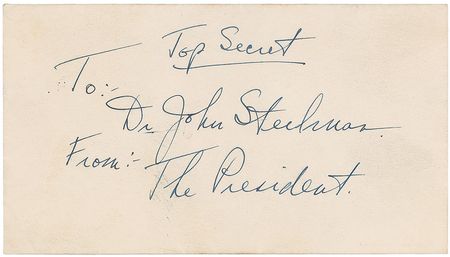 Top Secret
To:-
Dr John Steelman.
From:-
The President.